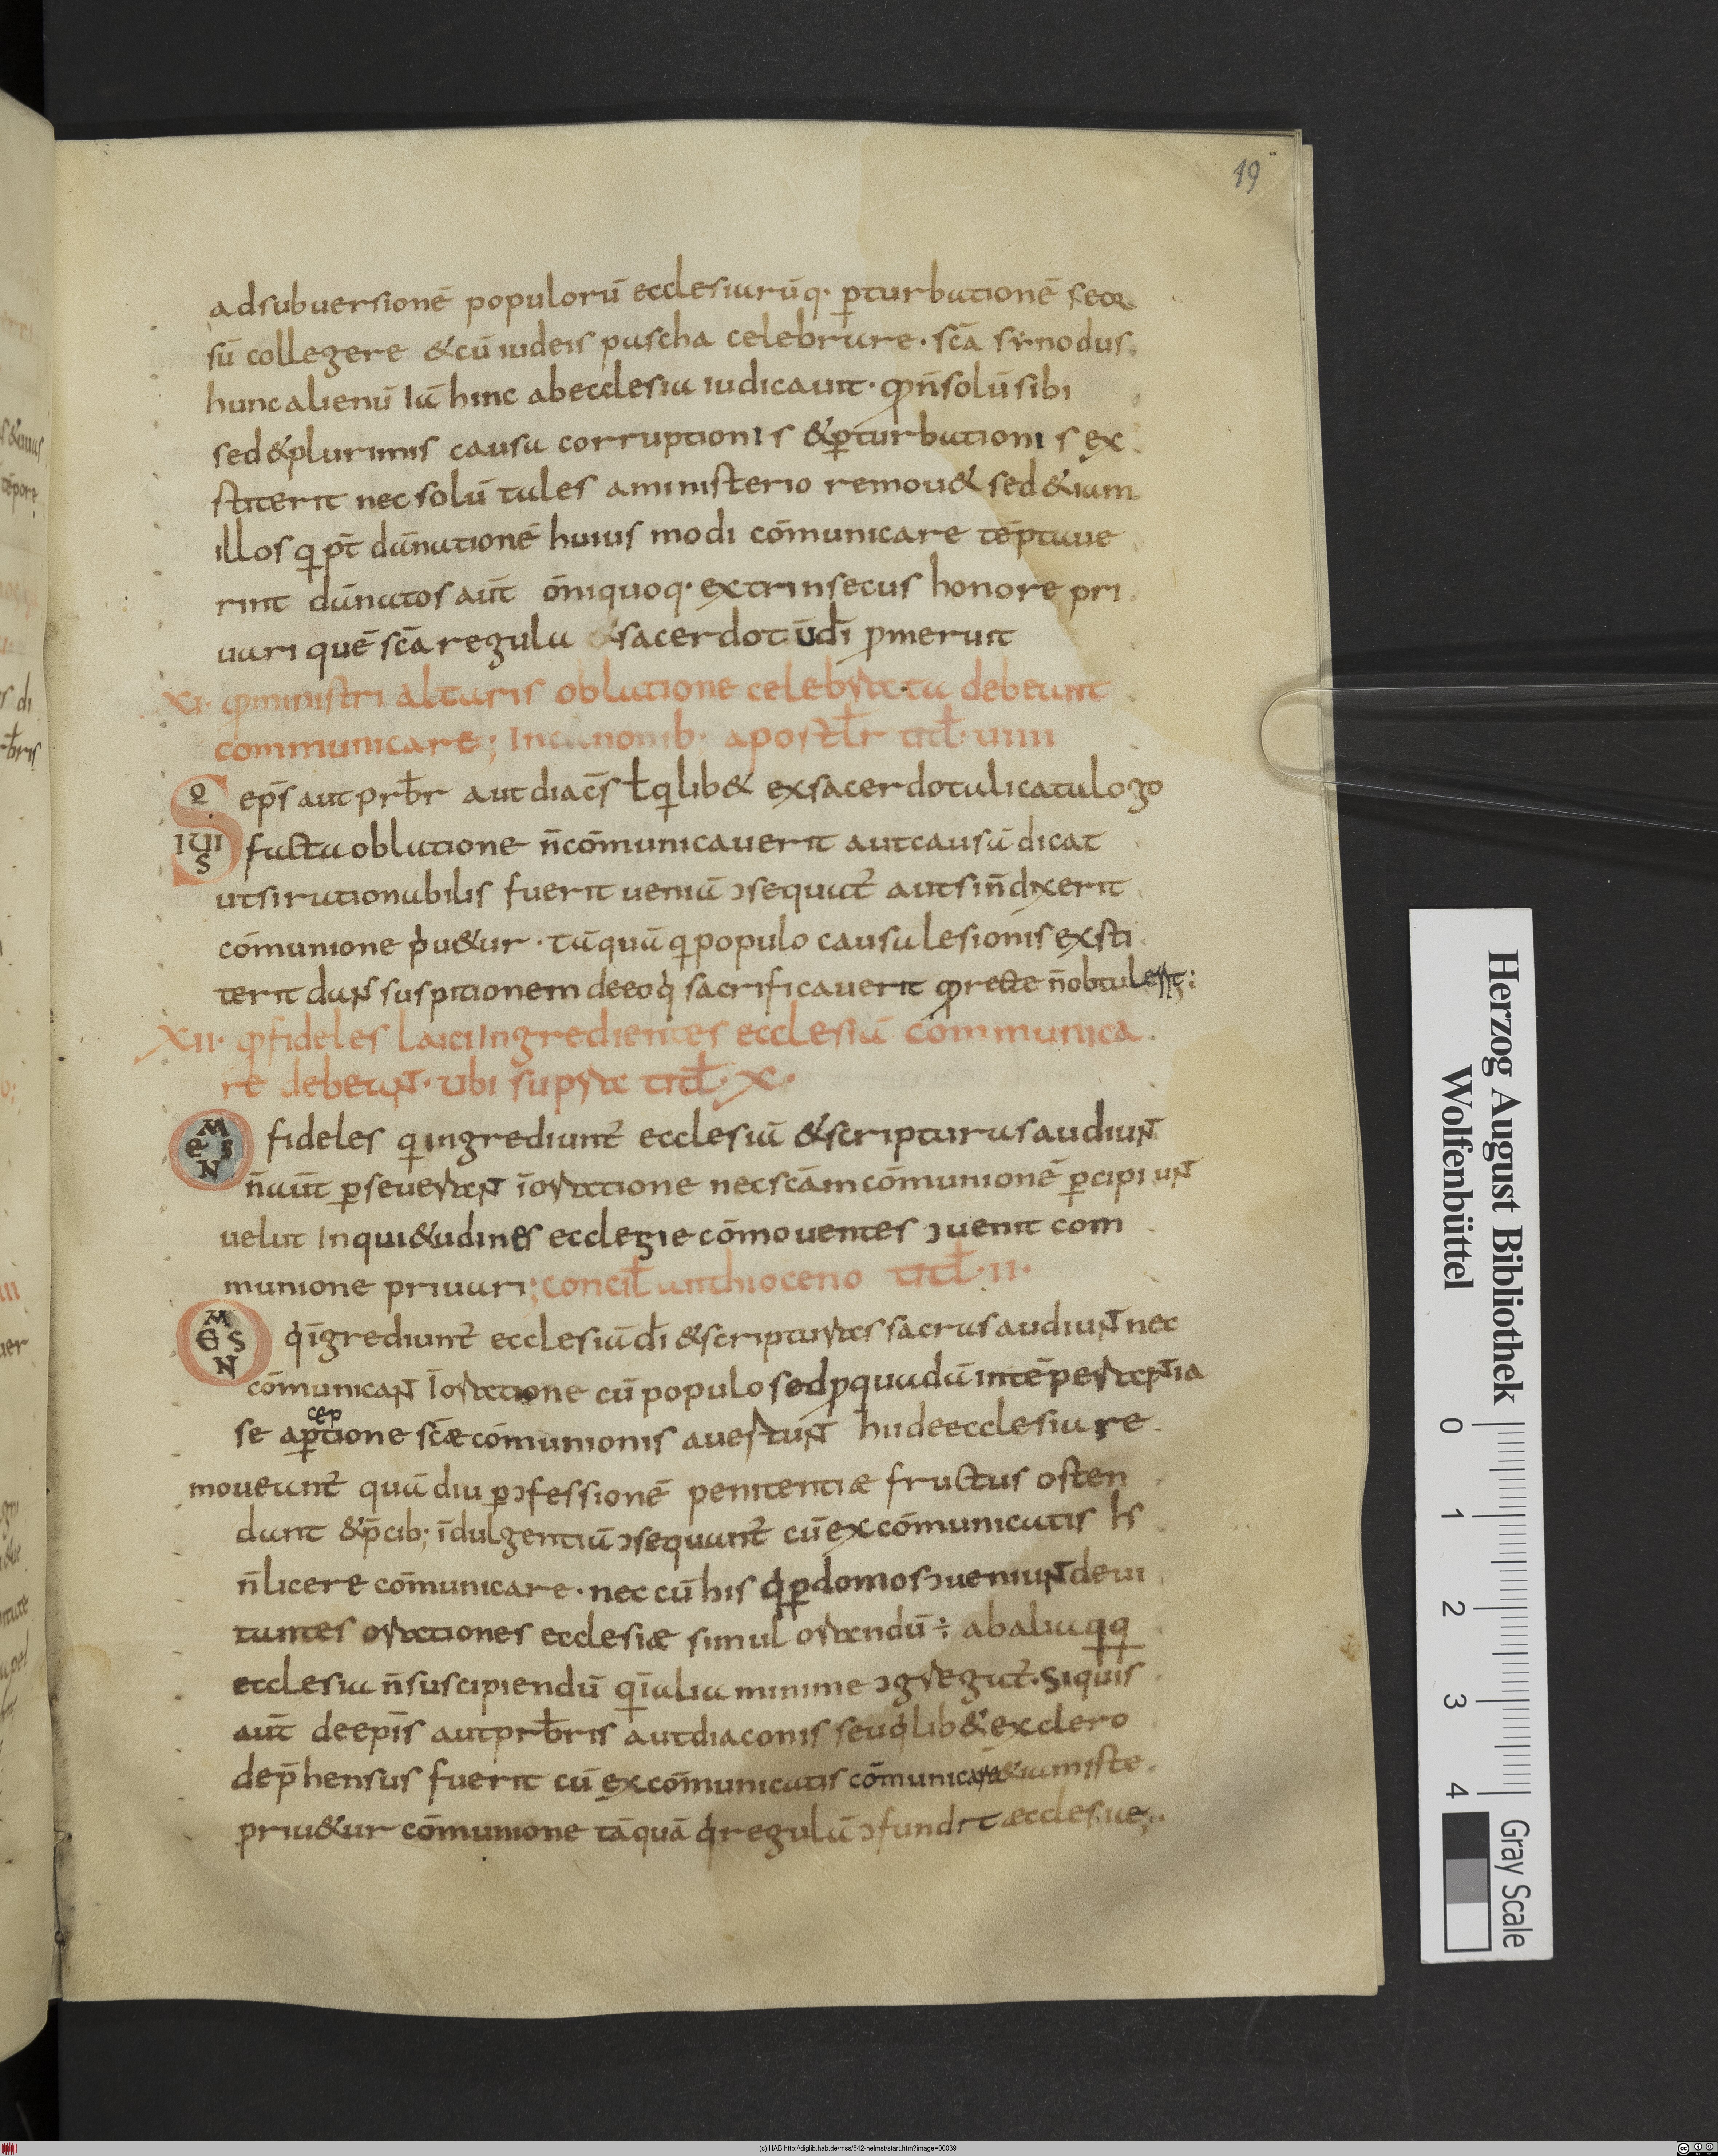 19
adsubuersionē populorū ecclesiarūq· ꝑturbationē seor
sū collegere &cū iudeis pascha celebrare· sc̄a sẏnodus
hunc alienū Iā hinc abecclesia iudicauit· qđ n̄solū sibi
sed&plurimis causa corruptionis &ꝑturbationis ex
stiterit nec solū tales aministerio remou& sed &iam
illos qui pt̄ dānationē huius modi cōmunicare tēptaue
rint dānatos aūt ōniquoq· extrinsecus honore pri
uari quē sc̄a regula &sacerdotiū dī ꝓmeruit
XI· qđ ministri altaris oblatione celebrata debeant
communicare; Incanonib· apostl̄r titl̄· uiiii
SIQUIS eps̄ aut prb̄r aut diac̄s ł qilib& exsacerdotali catalogo
facta oblatione n̄cōmunicauerit aut causā dicat
utsi rationabilis fuerit ueniā ↄsequat᷑ aut sin̄dixerit
cōmunione pͥu&ur· tāquā qi populo causa lesionis exsti
terit daN suspitionem deeoqͥ sacrificauerit qđ recte n̄obtulerit;
XII· qđ fideles laici Ingredientes ecclesiā communica
re debeaNT· ubi supra titl̄· X·
OMNES fideles qi ingrediunt᷑ ecclesiā &scripturas audiuNT
n̄aūt ꝑseueraNT īoratione nec sc̄am cōmunionē ꝑcipiuNT
uelut Inqui&udines ecclesie cōmouentes ↄuenit com
munione priuari; concil̄ anthioceno titl̄· II·
OMNES qͥ īgrediunt᷑ ecclesiā dī &scripturas sacras audiuNT nec
cōmunicaNT Īoratione cū populo sed ꝓquadā intēperaNTia
se aꝑceptione sc̄æ cōmunionis auertuNT hiideecclesia re
moueant᷑ quā diu ꝑↄfessionē penitentiæ fructus osten
dant &p̄cib; īdulgentiā ↄsequant᷑ cū excōmunicatis ħs
n̄licere cōmunicare· nec cū his qͥ ꝑdomos ↄueniuNT deui
tantes orationes ecclesiæ simul orandū ÷ abalia qq
ecclesia n̄suscipiendū qi īalia minime ↄgregat᷑· Siquis
aūt deepīs aut prb̄ris aut diaconis seu qͥlib& exclero
dep̄hensus fuerit cū excōmunicatis cōmunicare &iam iste
priu&ur cōmunione tāquā qͥ regulā ↄfundit ecclesiae;
Herzog August Bibliothek
Wolfenbüttel
0 1 2 3 4
Gray Scale
(c) HAB http://diglib.hab.de/mss/842-helmst/start.htm?image=00039